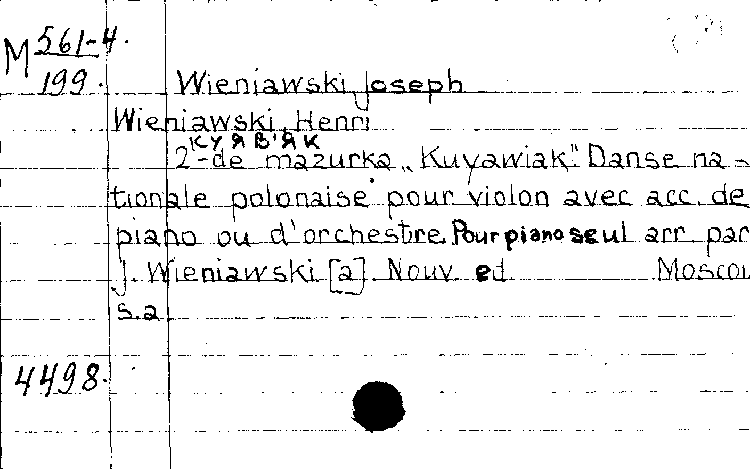 M 561-4.
199.
Wieniawski Joseph
Wieniawski, Henri
КУЯВ'ЯК
2-de mazurka „Kuyawiak". Danse na-
tionale polonaise pour violon avec acc. de
piano ou d'orchestre. Pour piano seul arr. par
J. Wieniawski [a]. Nouv. ed. Moscou
s.a.
4498.